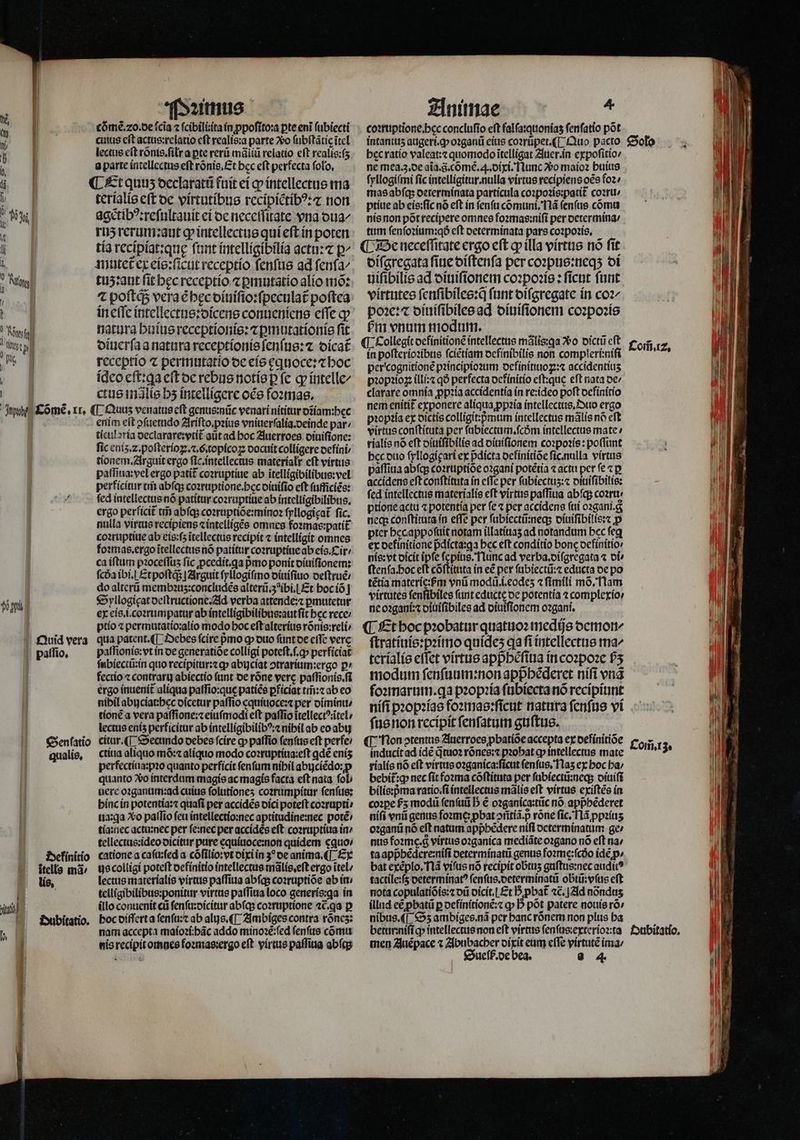 Primus
cōmē.20.de scīa ⁊ scibili:ita in ꝓposito:a pte enī subiecti
cuius est actus:relatio est realis:a parte ꝟo substātię itel
lectus est rōnis.silr a pte rerū māliū relatio est realis:sꝫ
a parte intellectus est rōnis. Et hęc est perfecta solo.
¶ Et quuꝫ declaratū fuit ei ꝙ intellectus ma
terialis est de virtutibus recipiētibꝰ:⁊ non
agētibꝰ:resultauit ei de necessitate vna dua⸗
ruꝫ rerum:aut ꝙ intellectus qui est in poten
tia recipiat:quę sunt intelligibilia actu:⁊ p⸗
mutet ex eis:sicut receptio sensus ad sensa⸗
tuꝫ:aut sit hęc receptio ⁊ pmutatio alio mō:
⁊ postꝗꝫ vera ē hęc diuisio:speculat postea
in esse intellectus:dicens conueniens esse ꝙ
natura huius receptionis:⁊ pmutationis sit
diuersa a natura receptionis sensus:⁊ dicat
receptio ⁊ permutatio de eis equoce:⁊ hoc
ideo est:qa est de rebus notis p se ꝙ intelle⸗
ctus mālis hꝫ intelligere oēs formas.
Cōmē.11. ¶ Quuꝫ venatus est genus:nūc venari nititur dr̄iam:hęc
enim est ꝯsuetudo Aristo.prius vniuersalia.deinde par⸗
ticularia declarare:vtit aūt ad hoc Auerroes diuisione:
sic eniꝫ.2.posterioꝝ.⁊.6.topicoꝝ docuit colligere defini⸗
tionem. Arguit ergo sic.intellectus materialr est virtus
passiua:vel ergo patit corruptiue ab itelligibilibus:vel
perficitur tm̄ absqꝫ corruptione.hęc diuisio est sufficiēs:
sed intellectus nō patitur corruptiue ab intelligibilibus.
ergo perficit tm̄ absqꝫ corruptiōe:minor syllogiçat sic.
nulla virtus recipiens ⁊ intelligēs omnes formas:patit
corruptiue ab eis:sꝫ itellectus recipit ⁊ intelligit omnes
formas.ergo itellectus nō patitur corruptiue ab eis. Cir⸗
ca istum processus sic ꝓcedit.qa pmo ponit diuisionem:
scda ibi.[ Et postꝗꝫ] Arguit syllogismo diuisiuo destruē⸗
do alterū membruꝫ:concludēs alterū.3ꝰ ibi.[ Et hoc iō ]
Syllogiçat destructione. Ad verba attende:⁊ pmutetur
ex eis.i.corrumpatur ab intelligibilibus:aut sit hęc rece⸗
ptio ⁊ permutatio:alio modo hoc est alterius rōnis:reli⸗
Quid vera qua patent.¶ Debes scire pmo ꝙ duo sunt de esse verę
passio. passionis:vt in de generatiōe colligi potest.s.ꝙ perficiat
subiectū:in quo recipitur:⁊ ꝙ abijciat ꝯtrarium:ergo p⸗
fectio ⁊ contrarij abiectio sunt de rōne verę passionis.si
ergo inuenit aliqua passio:quę patiēs pficiat tm̄:⁊ ab eo
nihil abijciat:hęc dicetur passio equiuoce:⁊ per diminu⸗
tionē a vera passione:⁊ eiusmodi est passio itellectꝰ:itel⸗
lectus eniꝫ perficitur ab intelligibilibꝰ:⁊ nihil ab eo abij
Sensatio citur.¶ Secundo debes scire ꝙ passio sensus est perfe⸗
qualis. ctiua aliquo mō:⁊ aliquo modo corruptiua:est qdē eniꝫ
perfectiua:pro quanto perficit sensum nihil abijciēdo:ꝓ
quanto ꝟo interdum magis ac magis facta est nata sol⸗
uere organum:ad cuius solutioneꝫ corrumpitur sensus:
hinc in potentia:⁊ quasi per accidēs dici potest corrupti⸗
ua:qa ꝟo passio seu intellectio:nec aptitudine:nec potē⸗
tia:nec actu:nec per se:nec per accidēs est corruptiua in⸗
tellectus:ideo dicitur pure equiuoce:non quidem equo⸗
Definitio catione a casu:sed a cōsilio:vt dixi in 3ꝰ de anima.¶ Ex
itells mā⸗ ijs colligi potest definitio intellectus mālis,est ergo itel⸗
lis. lectus materialis virtus passiua absqꝫ corruptiōe ab in⸗
telligibilibus:ponitur virtus passiua loco generis:qa in
illo conuenit cū sensu:dicitur absqꝫ corruptione ⁊c.qa ꝑ
Dubitatio. hoc differt a sensu:⁊ ab alijs.¶ Ambiges contra rōneꝫ:
nam accepta maiori:hāc addo minorē:sed sensus cōmu
nis recipit omnes formas:ergo est virtus passiua absqꝫ
Animae 4
corruptione.hęc conclusio est falsa:quoniaꝫ sensatio pōt
intantuꝫ augeri.ꝙ organū eius corrūpet.¶ Quo pacto Solo
hęc ratio valeat:⁊ quomodo itelligat Auer.in expositio⸗
ne mea.3.de aīa.q.cōmē.4.dixi. Nunc ꝟo maior huius
syllogismi sic intelligitur.nulla virtus recipiens oēs for⸗
mas absqꝫ determinata particula corporis:patit corru⸗
ptiue ab eis:sic nō est in sensu cōmuni. Nā sensus cōmu
nis non pōt recipere omnes formas:nisi per determina⸗
tum sensorium:qd est determinata pars corporis.
¶ De necessitate ergo est ꝙ illa virtus nō sit
disgregata siue distensa per corpus:neqꝫ di
uisibilis ad diuisionem corporis : sicut sunt
virtutes sensibiles:q sunt disgregate in cor⸗
pore:⁊ diuisibiles ad diuisionem corporis
ẜm vnum modum.
¶ Collegit definitionē intellectus mālis:qa ꝟo dictū est Com̄.12.
in posterioribus sciētiam definibilis non compleri:nisi
per cognitionē principiorum definitiuoꝝ:⁊ accidentiuꝫ
proprioꝝ illi:⁊ qd perfecta definitio est:quę est nata de⸗
clarare omnia ꝓpria accidentia in re:ideo post definitio
nem enitit exponere aliqua ꝓpria intellectus. Duo ergo
propria ex dictis colligit:pmum intellectus mālis nō est
virtus constituta per subiectum.scdm intellectus mate⸗
rialis nō est diuisibilis ad diuisionem corporis:possunt
hęc duo syllogiçari ex pdicta definitiōe sic.nulla virtus
passiua absqꝫ corruptiōe organi potētia ⁊ actu per se ⁊ ꝑ
accidens est constituta in esse per subiectuꝫ:⁊ diuisibilis:
sed intellectus materialis est virtus passiua absqꝫ corru⸗
ptione actu ⁊ potentia per se ⁊ per accidens sui organi.ꝗ
neqꝫ constituta in esse per subiectū:neqꝫ diuisibilis:⁊ ꝓ
pter hęc apposuit notam illatiuaꝫ ad notandum hęc seq̄
ex definitione pdicta:qa hęc est conditio bonę definitio⸗
nis:vt dicit ipse sępius. Nunc ad verba.disgregata ⁊ di⸗
stensa.hoc est cōstituta in eē per subiectū:⁊ educta de po
tētia materię:ẜm vnū modū.i.eodeꝫ ⁊ simili mō. Nam
virtutes sensibiles sunt educte de potentia ⁊ complexio⸗
ne organi:⁊ diuisibiles ad diuisionem organi.
¶ Et hoc probatur quatuor medijs demon⸗
stratiuis:primo quideꝫ qa si intellectus ma⸗
terialis esset virtus apphēsiua in corpore ẜꝫ
modum sensuum:non apphēderet nisi vnā
formarum.qa propria subiecta nō recipiunt
nisi proprias formas:sicut natura sensus vi
sus non recipit sensatum gustus.
¶ Non ꝯtentus Auerroes pbatiōe accepta ex definitiōe Com̄.13.
inducit ad idē quattuor rōnes:⁊ probat ꝙ intellectus mate
rialis nō est virtus organica:sicut sensus. Naꝫ ex hoc ha⸗
bebit:ꝙ nec sit forma cōstituta per subiectū:neqꝫ diuisi
bilis:pma ratio.si intellectus mālis est virtus existēs in
corpe ẜꝫ modū sensuū ꝧ ē organica:tūc nō apphēderet
nisi vnū genus formę:pbat ꝯn̄tiā.p rōne sic. Nā ꝓpriuꝫ
organū nō est natum apphēdere nisi determinatum ge⸗
nus formę.ꝗ virtus organica mediāte organo nō est na⸗
ta apphēdere:nisi determinatū genus formę:scdo idē ꝓ⸗
bat exēplo. Nā visus nō recipit obtuꝫ gustus:nec auditꝰ
tactile:sꝫ determinatꝰ sensus.determinatū obtū:visus est
nota copulatiōis:⁊ dū dicit.[ Et ꝧ pbat ⁊c. ] Ad nōnduꝫ
illud eē pbatū ꝑ definitionē:⁊ ꝙ ꝧ pōt patere nouis rō⸗
nibus.¶ Sꝫ ambiges.nā per hanc rōnem non plus ha Dubitatio.
betur:nisi ꝙ intellectus non est virtus sensus:exterior:ta
men Auēpace ⁊ Abubacher dixit eum esse virtutē ima⸗
Suess.de bea. a 4